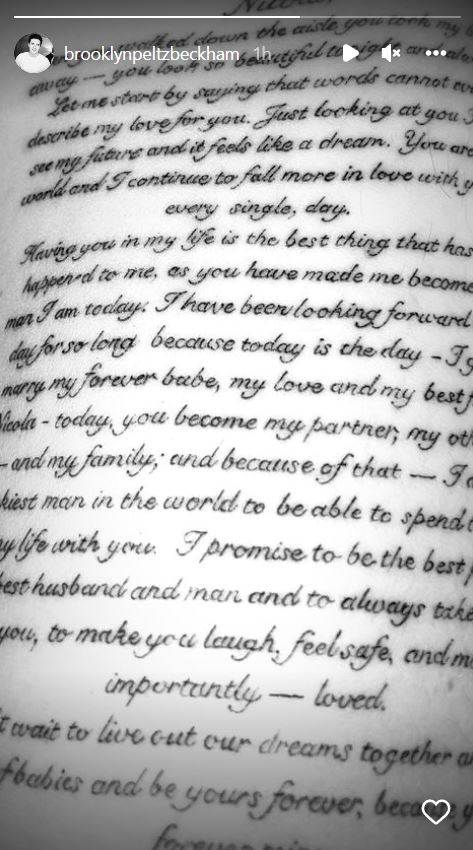 Nicola,
brooklynpeltzbeckham 1h
walked down the aisle, you took my
away — you look so beautiful tonight
Let me start by saying that words cannot
describe my love for you. Just looking at you I
see my future and it feels like a dream. You are
world and I continue to fall more in love with y
every single, day.
Having you in my life is the best thing that has
happened to me, as you have made me become
man I am today. I have been looking forward
day for so long because today is the day - I g
marry my forever babe, my love and my best f
Nicola - today, you become my partner, my ot
- and my family; and because of that — I a
kiest man in the world to be able to spend
y life with you. I promise to be the best
est husband and man and to always take
you, to make you laugh, feel safe, and m
importantly — loved.
t wait to live out our dreams together a
f babies and be yours forever, because y
forever mine